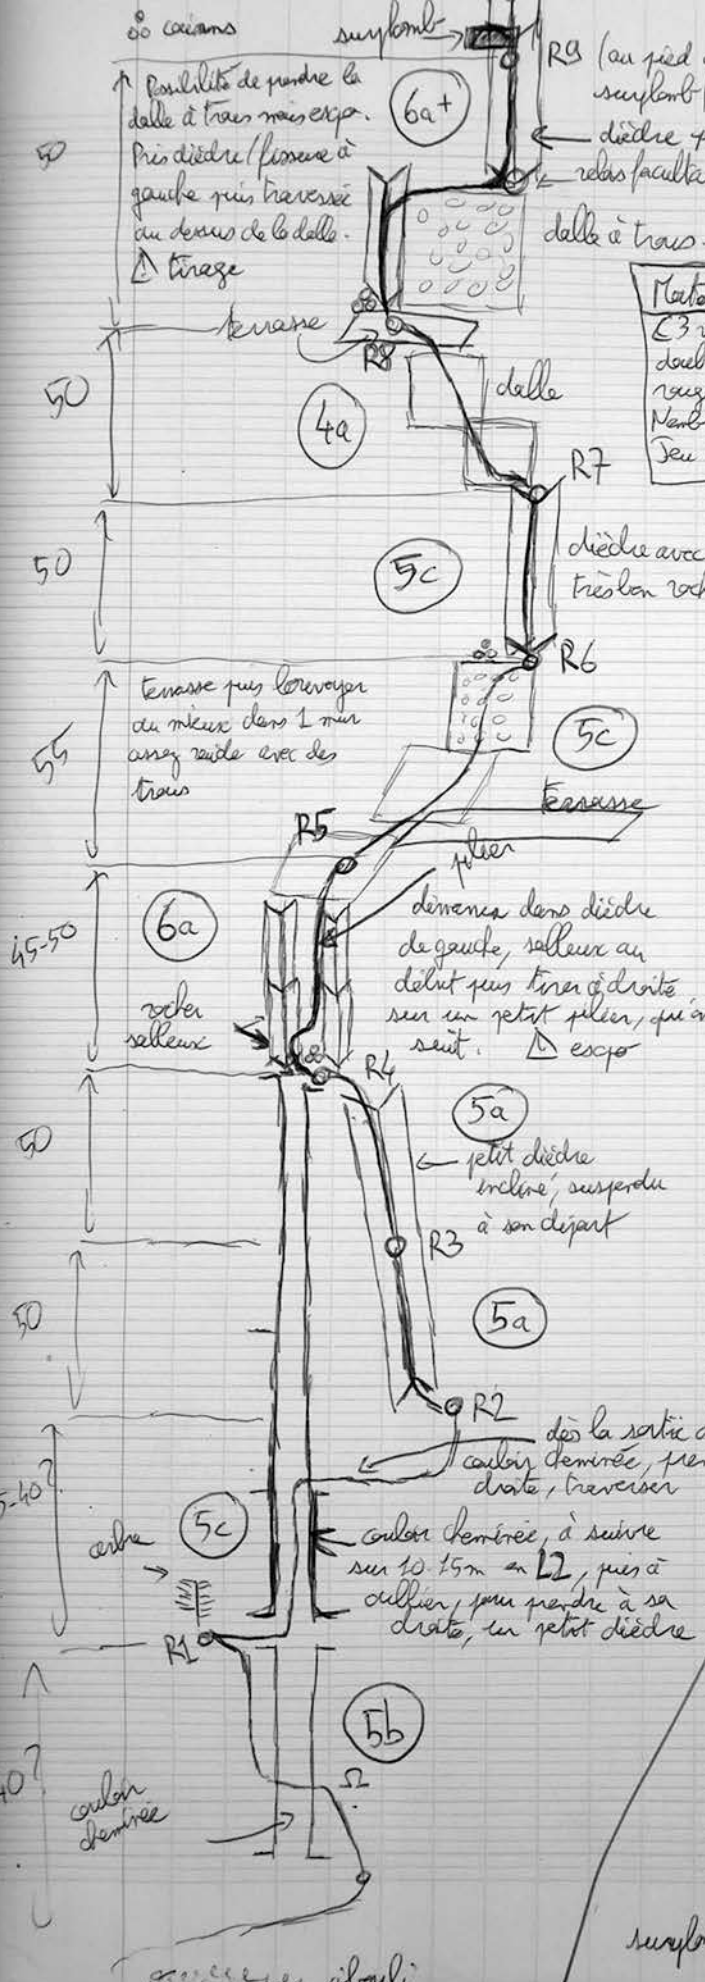 cairns
surplomb
R9 (au pied
surplomb
6a+
Possibilité de prendre la
dalle à trous mais expo.
Pris dièdre/fissure à
gauche puis traversée
au dessus de la dalle.
⚠ tirage
50
dièdre
relais faculta
dalle à trous
terrasse
R8
Mate
doub
roug
Jeu
50
4a
dalle
R7
50
5c
dièdre avec
très bon roch
R6
terrasse puis louvoyer
au mieux dans 1 mur
assez raide avec des
trous
55
5c
terrasse
R5
pilier
45-50
6a
démarrer dans dièdre
de gauche, salleux au
début puis tirer à droite
sur un petit pilier, qu'on
suit. ⚠ expo
rocher
salleux
R4
50
5a
petit dièdre
incliné, suspendu
à son départ
R3
50
5a
R2
dès la sortie
couloir cheminée, pren
droite, traverser
5-40?
5c
arbre
couloir cheminée, à suivre
sur 10 15m en L2, puis à
oublier, pour prendre à sa
droite, un petit dièdre
R1
40?
5b
Ω
couloir
cheminée
surplo